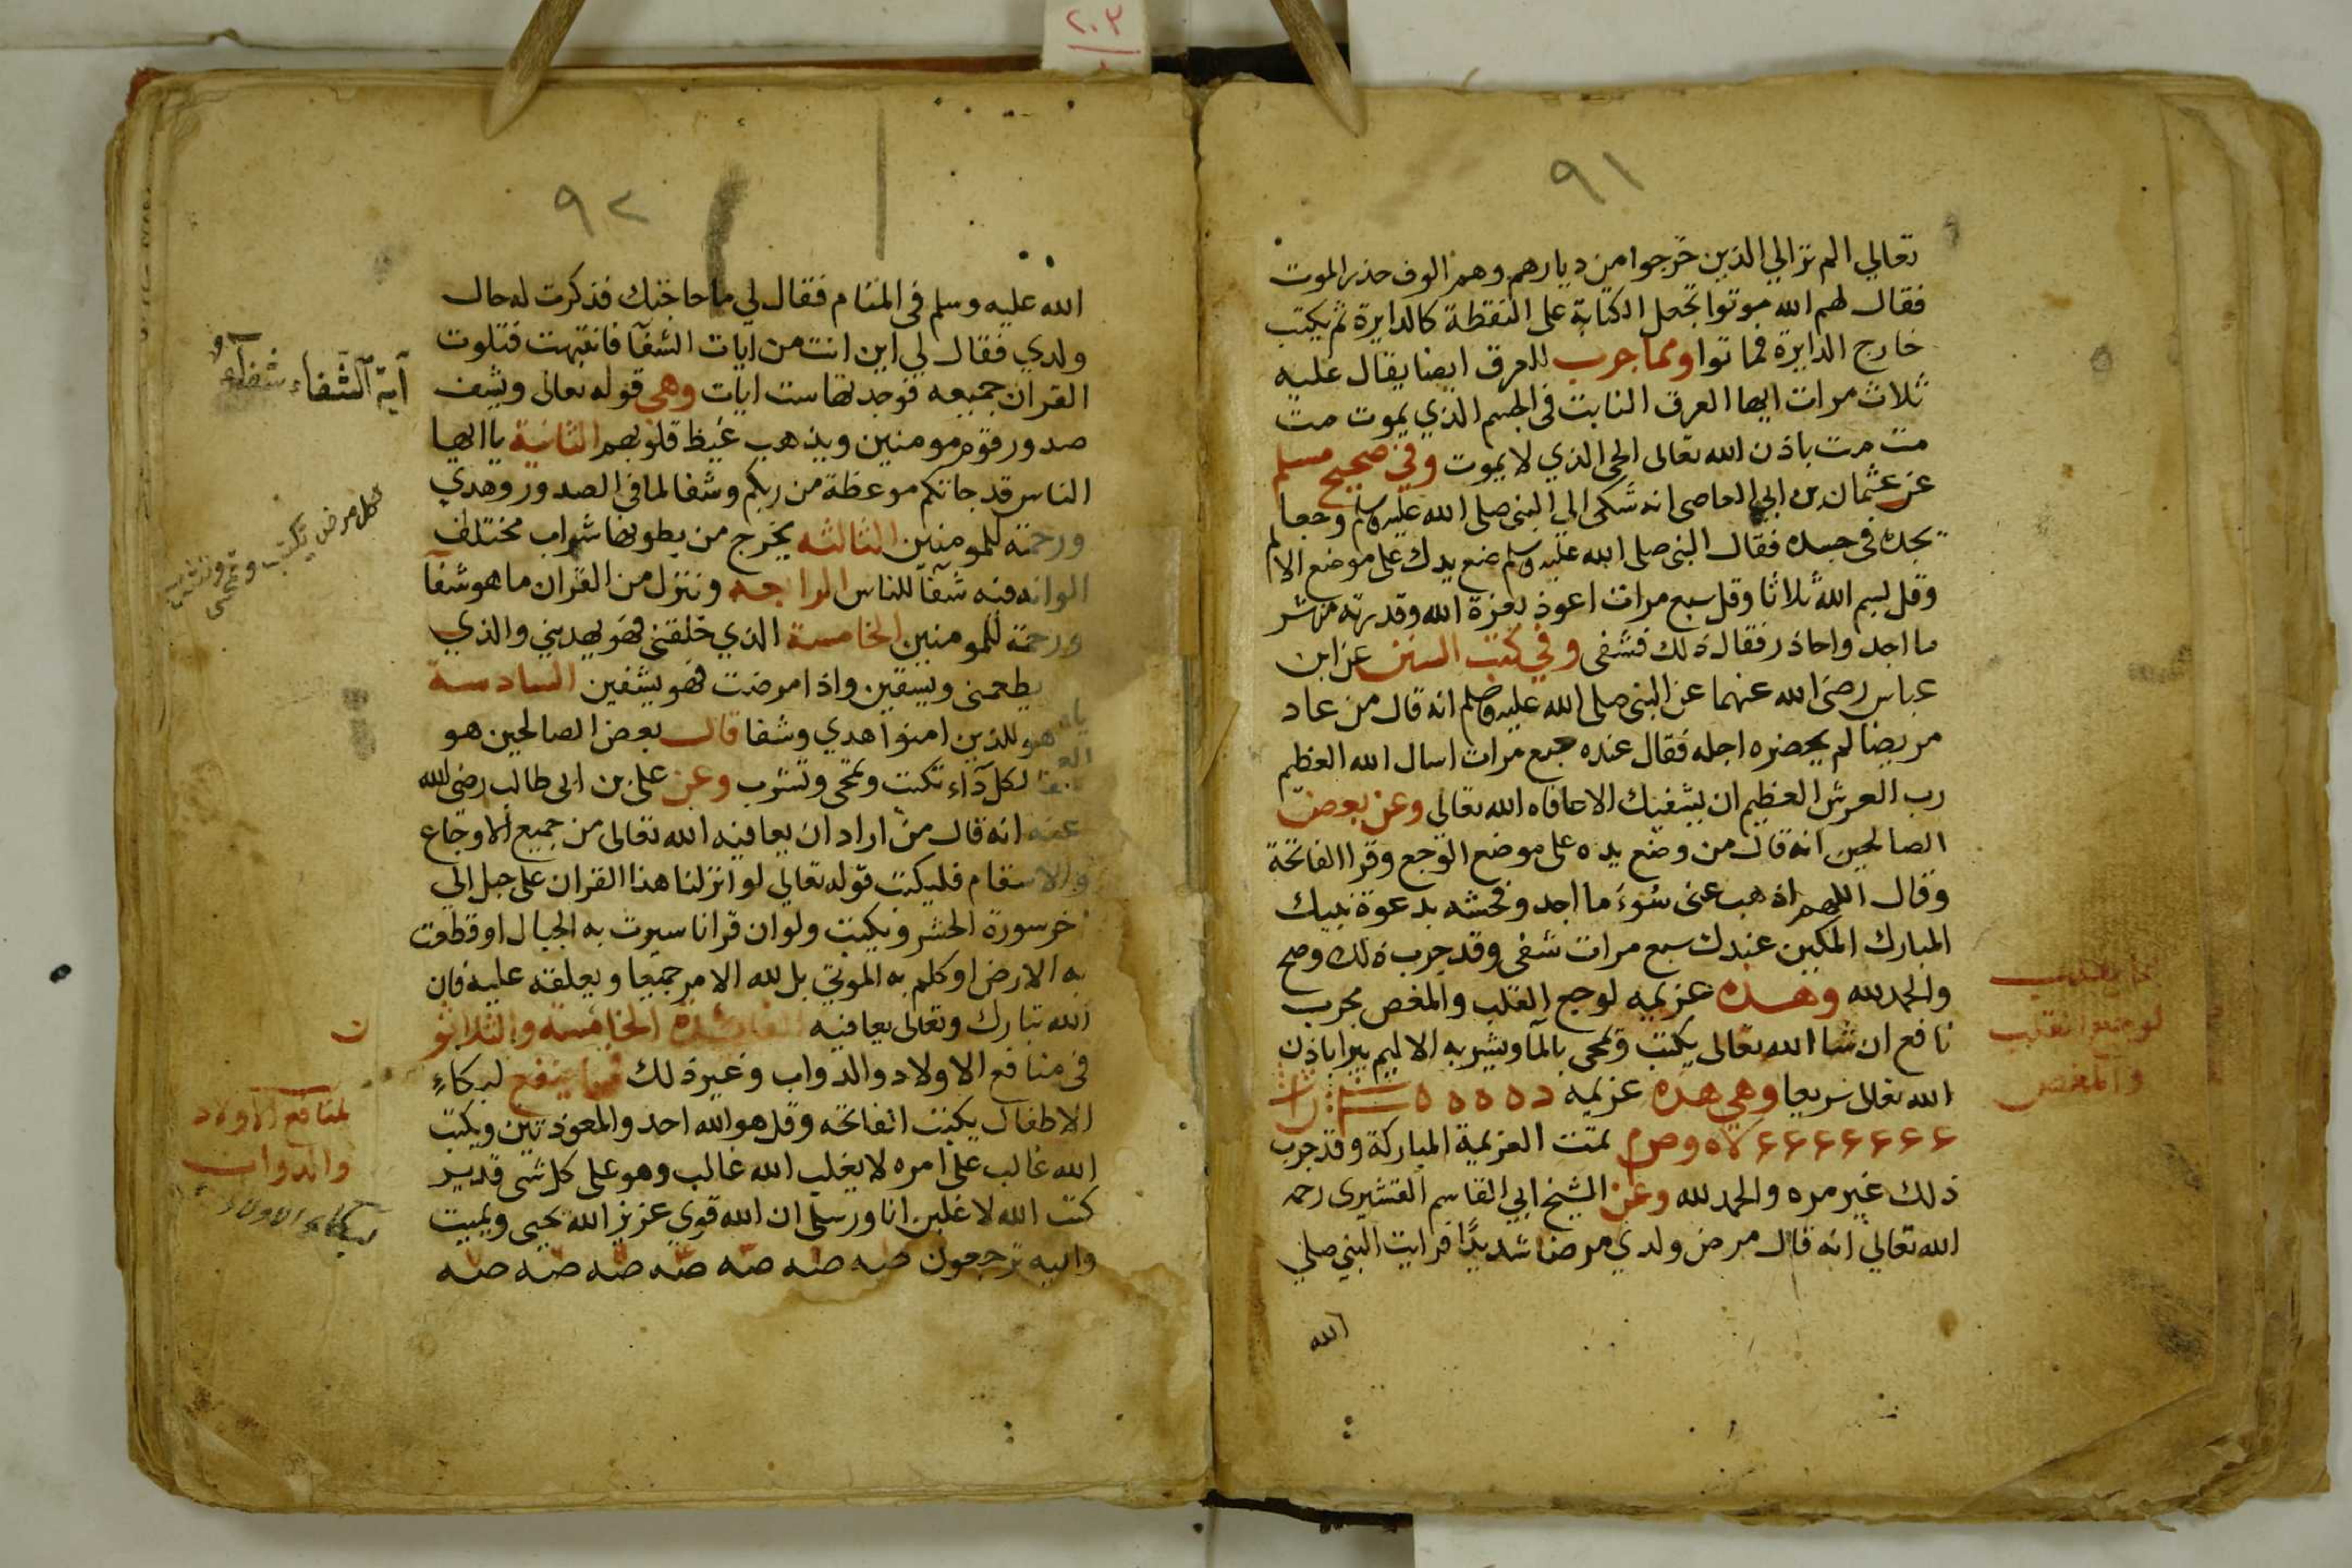 ٢٠٣
٩١
تعالي الم تر الي الذين خرجوا من ديارهم وهم الوف حذر الموت
فقال لهم الله موتوا تجعل الكتابة على النقطة كالدايرة ثم يكتب
خارج الدايرة فماتوا ومما جرب للعرق ايضا يقال عليه
ثلاث مرات ايها العرق النابت في الجسم الذي يموت مت
مت مت باذن الله تعالى الحي الذي لا يموت وفي صحيح مسلم
عن عثمان بن ابي العاصى انه شكى الي النبى صلى الله عليه وسلم وجعا
يجده في جسده فقال النبى صلى الله عليه وسلم ضع يدك على موضع الالم
وقل بسم الله ثلاثا وقل سبع مرات اعوذ بعزة الله وقدرته من شر
ما اجد واحاذر فقال ذلك فشفى وفي كتب السنن عن ابن
عباس رضى الله عنهما عن النبى صلى الله عليه وسلم انه قال من عاد
مريضا لم يحضره اجله فقال عنده سبع مرات اسال الله العظيم
رب العرش العظيم ان يشفيك الا عافاه الله تعالى وعن بعض
الصالحين انه قال من وضع يده على موضع الوجع وقرا الفاتحة
وقال اللهم اذهب عنى سوء ما اجد وفحشه بدعوة نبيك
المبارك المكين عندك سبع مرات شفى وقد جرب ذلك وصح
والحمد لله وهذه عزيمه لوجع القلب والمغص مجرب
نافع ان شا الله تعالى يكتب وتمحى بالمآ ويشربه الاليم يبرا باذن
الله تعالى سريعا وهي هذه عزيمه
تمت العزيمة المباركة وقد جرب
ذلك غير مره والحمد لله وعن الشيخ ابي القاسم القشيرى رحمه
الله تعالي انه قال مرض ولدي مرضا شديدًا فرايت النبي صلي
الله
لوجع القلب
والمغص
٩٢
الله عليه وسلم في المنام فقال لي ما حاجتك فذكرت له حال
ولدي فقال لي اين انت من ايات الشفآ فانتبهت فتلوت
القران جميعه فوجدتها ست ايات وهي قوله تعالى ويشف
صدور قوم مومنين ويذهب غيظ قلوبهم الثانية يا ايها
الناس قد جاتكم موعظة من ربكم وشفا لما في الصدور وهدي
ورحمة للمومنين الثالثه يخرج من بطونها شراب مختلف
الوانه فيه شفآ للناس الرابعه وننزل من القران ما هو شفآ
ورحمة للمومنين الخامسة الذي خلقنى فهو يهديني والذي
يطعمنى ويسقين واذا مرضت فهو يشفين السادسة
هو للذين امنوا هدي وشفا قال بعض الصالحين هو
لكل دآء تكتب وتمحى وتشرب وعن على بن ابى طالب رضى الله
عنه انه قال من اراد ان يعافيه الله تعالى من جميع الاوجاع
والاسقام فليكتب قوله تعالي لو انزلنا هذا القران على جبل الي
اخر سورة الحشر ويكتب ولو ان قرانا سيرت به الجبال او قطعت
به الارض او كلم به الموتى بل لله الامر جميعا ويعلقه عليه فان
الله تبارك وتعالى يعافيه الفائدة الخامسة والثلاثو ن
في منافع الاولاد والدواب وغير ذلك فما ينفع لبكاء
الاطفال يكتب الفاتحه وقل هو الله احد والمعوذتين ويكتب
الله غالب على امره لا يغلب الله غالب وهو على كل شى قدير
كتب الله لاغلبن انا ورسلى ان الله قوي عزيز الله يحيى ويميت
واليه ترجعون صه صه صه صه صه صه صه
آية الشفاء
لكل مرض تكتب وتمحى وتشرب
لمنافع الاولاد
والدواب